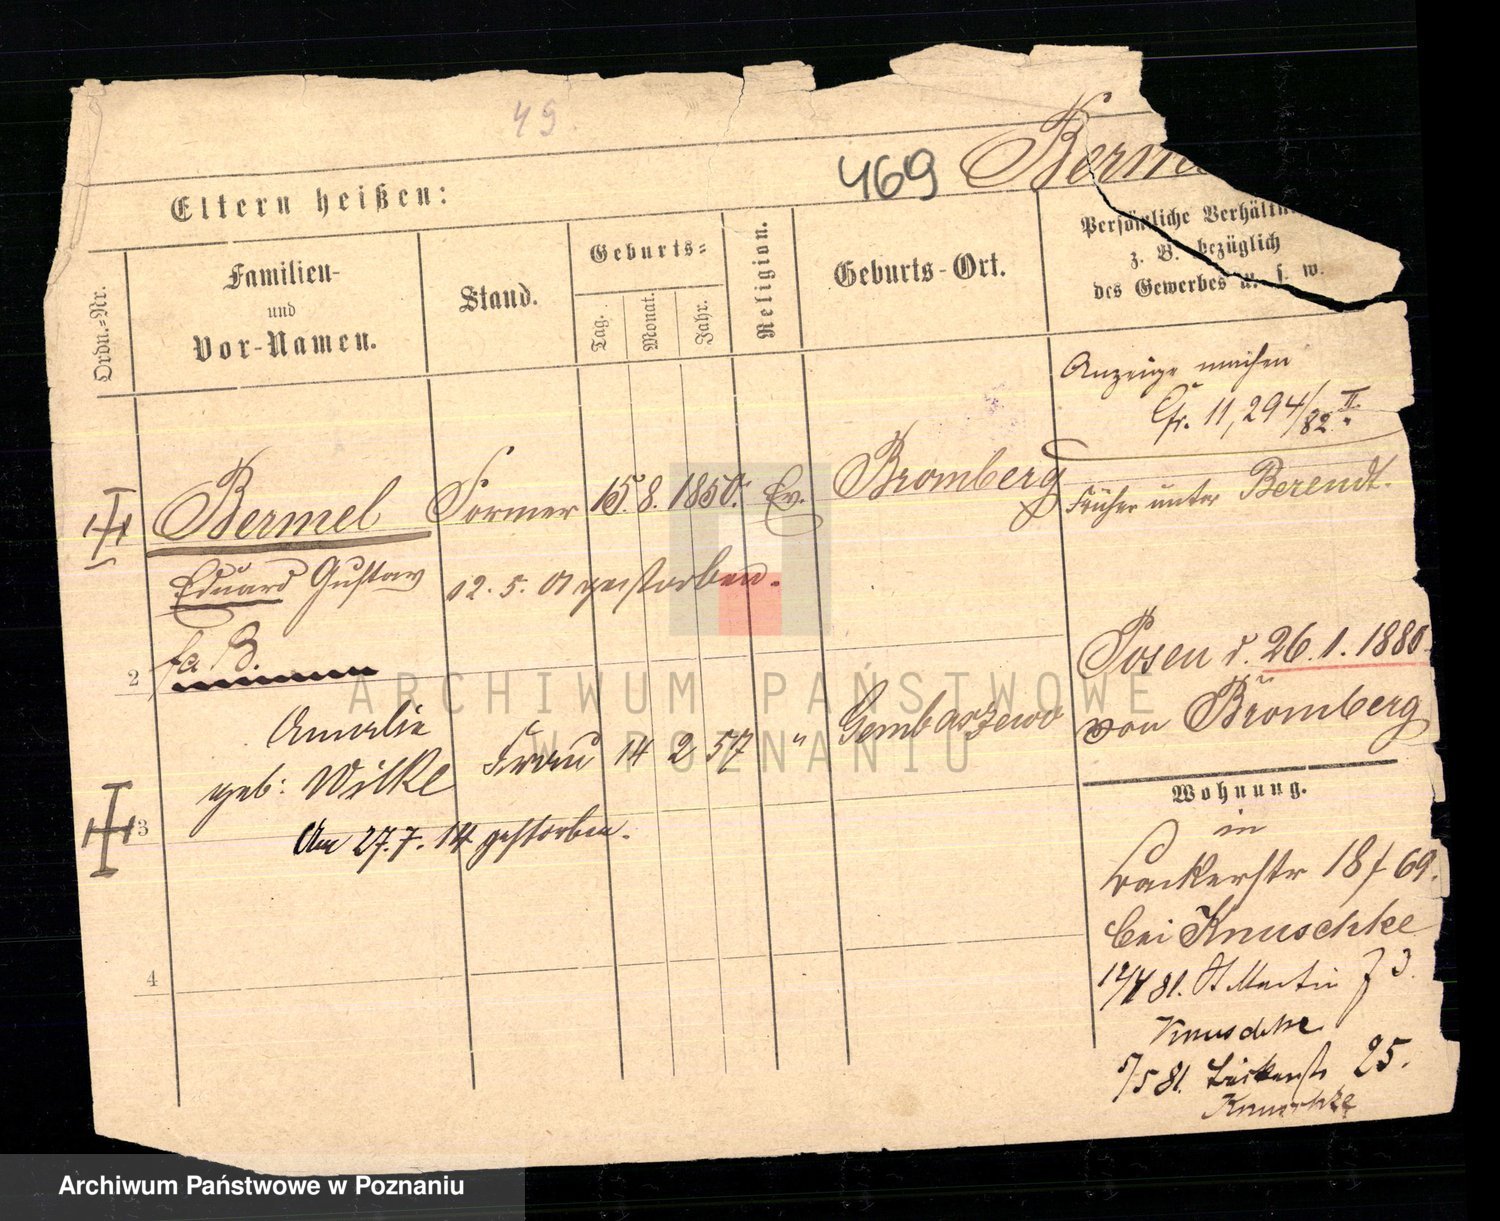 49.
469 Berme
Eltern heißen:
Ordn.=Nr.
Familien-
und
Vor-Namen.
Stand.
Geburts=
Tag.
Monat.
Jahr.
Religion.
Geburts-Ort.
Persönliche Verhältn
z. B. bezüglich
des Gewerbes u. s. w.
Anzeige machen
11,294/82 II.
Bermel Former 15. 8. 1850. Ev. Bromberg
Früher unter Berendt.
Eduard Gustav 12. 5. 01 gestorben.
fa B.
Posen d. 26. 1. 1880.
von Bromberg
2
Amalie
geb: Wilke Frau 14 2 57 " Gembarzewo
3
Am 27. 7. 14 gestorben.
4
Wohnung.
in
18 69.
bei Knuschke
81. St Martin 73.
Knuschke
5/5 81. 25.
Knuschke
ARCHIWUM PAŃSTWOWE
W POZNANIU
Archiwum Państwowe w Poznaniu